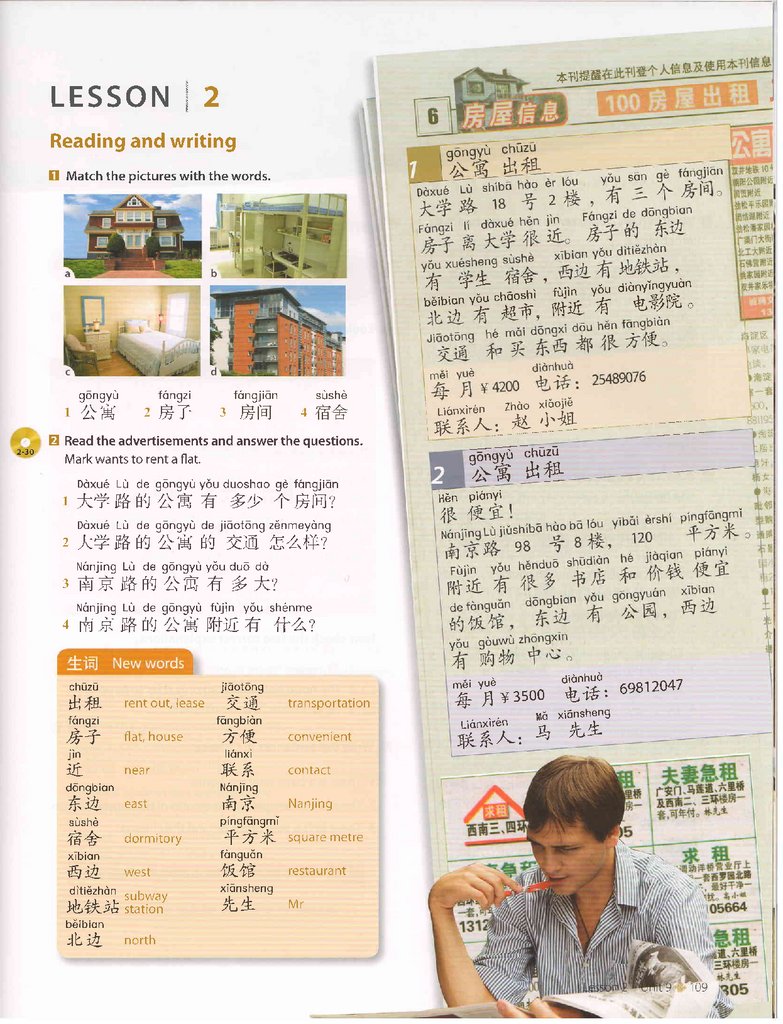 LESSON 2
Reading and writing
1 Match the pictures with the words.
a
b
c
d
gōngyù fángzi fángjiān sùshè
1 公寓 2 房子 3 房间 4 宿舍
2-30
2 Read the advertisements and answer the questions.
Mark wants to rent a flat.
Dàxué Lù de gōngyù yǒu duoshao gè fángjiān
1 大学路的公寓有多少个房间?
Dàxué Lù de gōngyù de jiāotōng zěnmeyàng
2 大学路的公寓的交通怎么样?
Nánjīng Lù de gōngyù yǒu duō dà
3 南京路的公寓有多大?
Nánjīng Lù de gōngyù fùjìn yǒu shénme
4 南京路的公寓附近有什么?
生词 New words
chūzū
出租 rent out, lease
fángzi
房子 flat, house
jìn
近 near
dōngbian
东边 east
sùshè
宿舍 dormitory
xībian
西边 west
dìtiězhàn
地铁站 subway station
běibian
北边 north
jiāotōng
交通 transportation
fāngbiàn
方便 convenient
liánxì
联系 contact
Nánjīng
南京 Nanjing
píngfāngmǐ
平方米 square metre
fànguǎn
饭馆 restaurant
xiānsheng
先生 Mr
本刊提醒在此刊登个人信息及使用本刊信息
6 房屋信息 100 房屋出租
公寓
1 gōngyù chūzū
公寓 出租
Dàxué Lù shíbā hào èr lóu yǒu sān gè fángjiān
大学路 18 号 2 楼，有三个房间。
Fángzi lí dàxué hěn jìn Fángzi de dōngbian
房子离大学很近。房子的东边
yǒu xuésheng sùshè xībian yǒu dìtiězhàn
有学生宿舍，西边有地铁站，
běibian yǒu chāoshì fùjìn yǒu diànyǐngyuàn
北边有超市，附近有电影院。
Jiāotōng hé mǎi dōngxi dōu hěn fāngbiàn
交通和买东西都很方便。
měi yuè diànhuà
每月 ¥4200 电话：25489076
Liánxìrén Zhào xiǎojiě
联系人：赵 小姐
2 gōngyù chūzū
公寓 出租
Hěn piányi
很便宜！
Nánjīng Lù jiǔshíbā hào bā lóu yìbǎi èrshí píngfāngmǐ
南京路 98 号 8 楼，120 平方米。
Fùjìn yǒu hěnduō shūdiàn hé jiàqian piányi
附近有很多书店和价钱便宜
de fànguǎn dōngbian yǒu gōngyuán xībian
的饭馆，东边有公园，西边
yǒu gòuwù zhōngxīn
有购物中心。
měi yuè diànhuà
每月 ¥3500 电话：69812047
Liánxìrén Mǎ xiānsheng
联系人：马 先生
求租
西南三、四环
夫妻急租
广安门、马莲道、六里桥
及西南二、三环楼房一
套,可年付。林先生
求 租
05664
急租
道、六里桥
三环楼房一
林先生
305
1312
Lesson 2 Unit 9 109